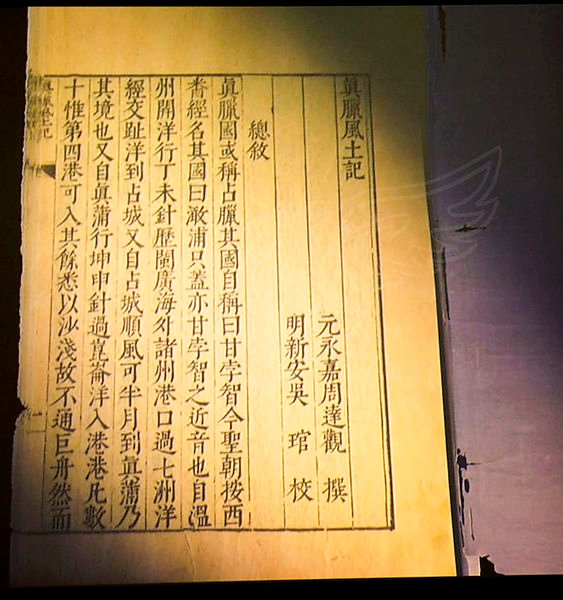 眞臘風土記
元永嘉周達觀 撰
明新安吳 琯 校
總敘
眞臘國或稱占臘其國自稱曰甘孛智今聖朝按西
番經名其國曰澉浦只蓋亦甘孛智之近音也自溫
州開洋行丁未針歷閩廣海外諸州港口過七洲洋
經交趾洋到占城又自占城順風可半月到眞蒲乃
其境也又自眞蒲行坤申針過崑崙洋入港港凡數
十惟第四港可入其餘悉以沙淺故不通巨舟然而